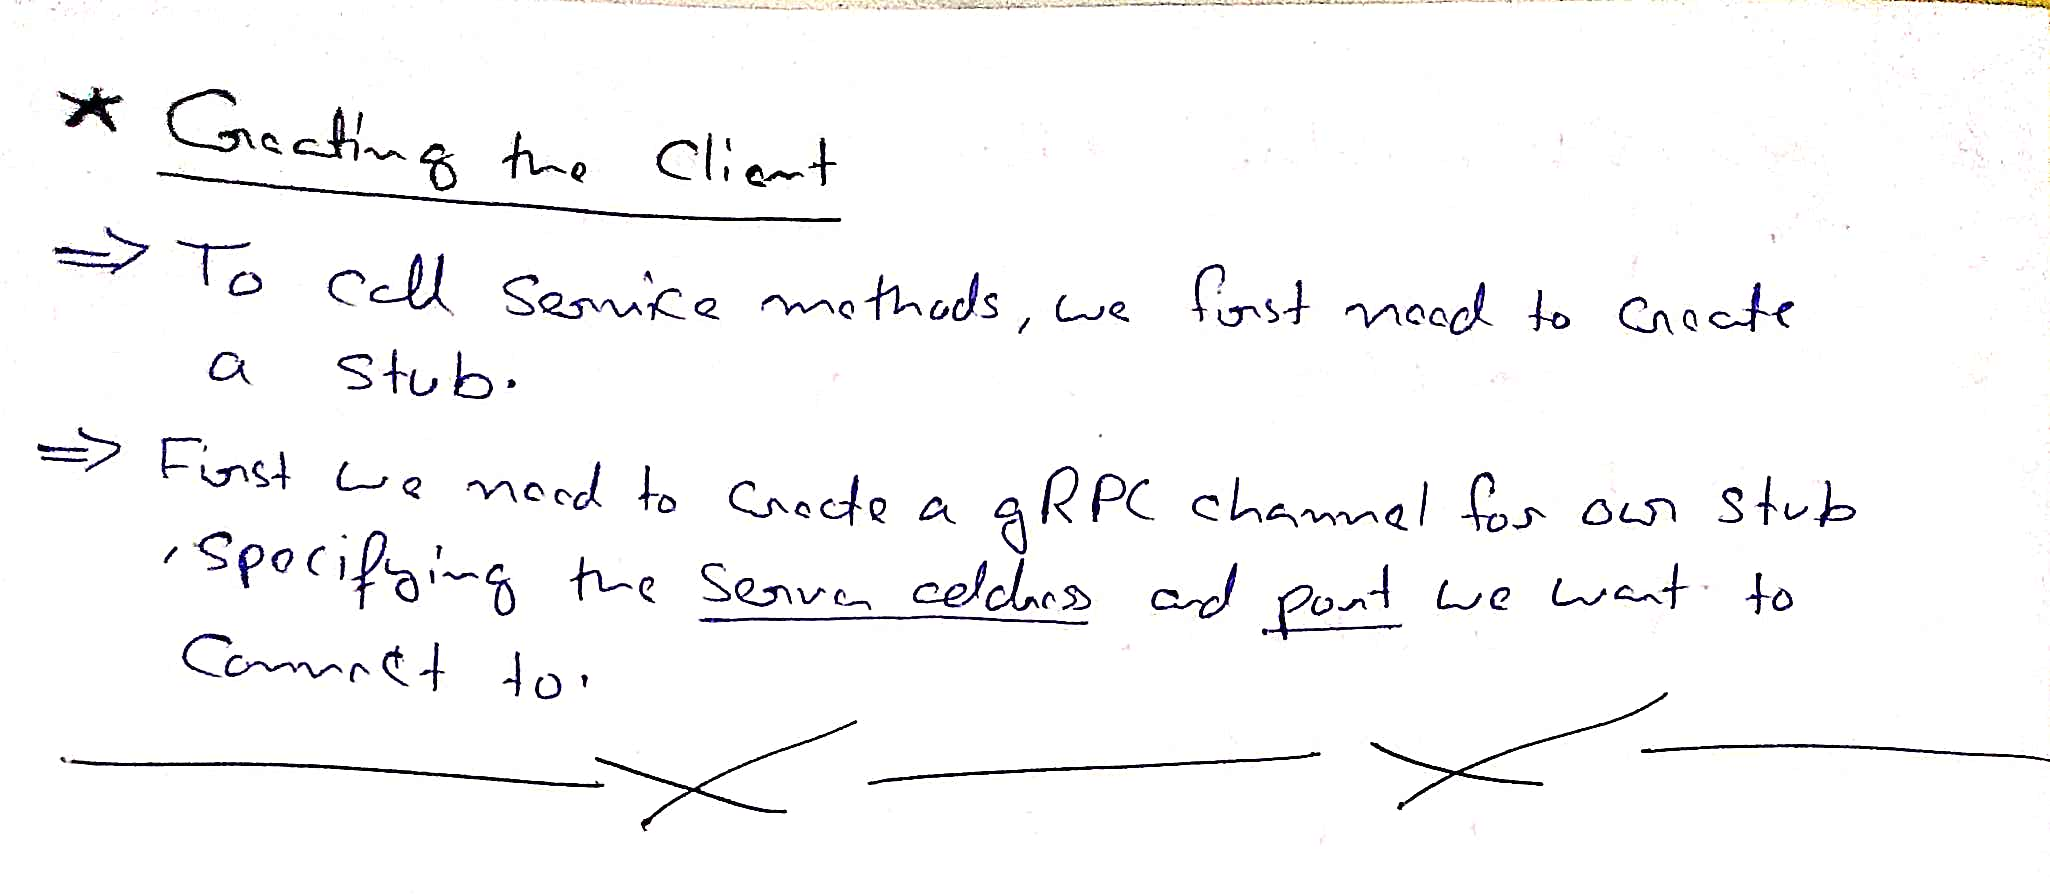 * Creating the Client
⇒ To call service methods, we first need to create
a stub.
⇒ First we need to create a gRPC channel for our stub
, specifying the server address and port we want to
Connect to.